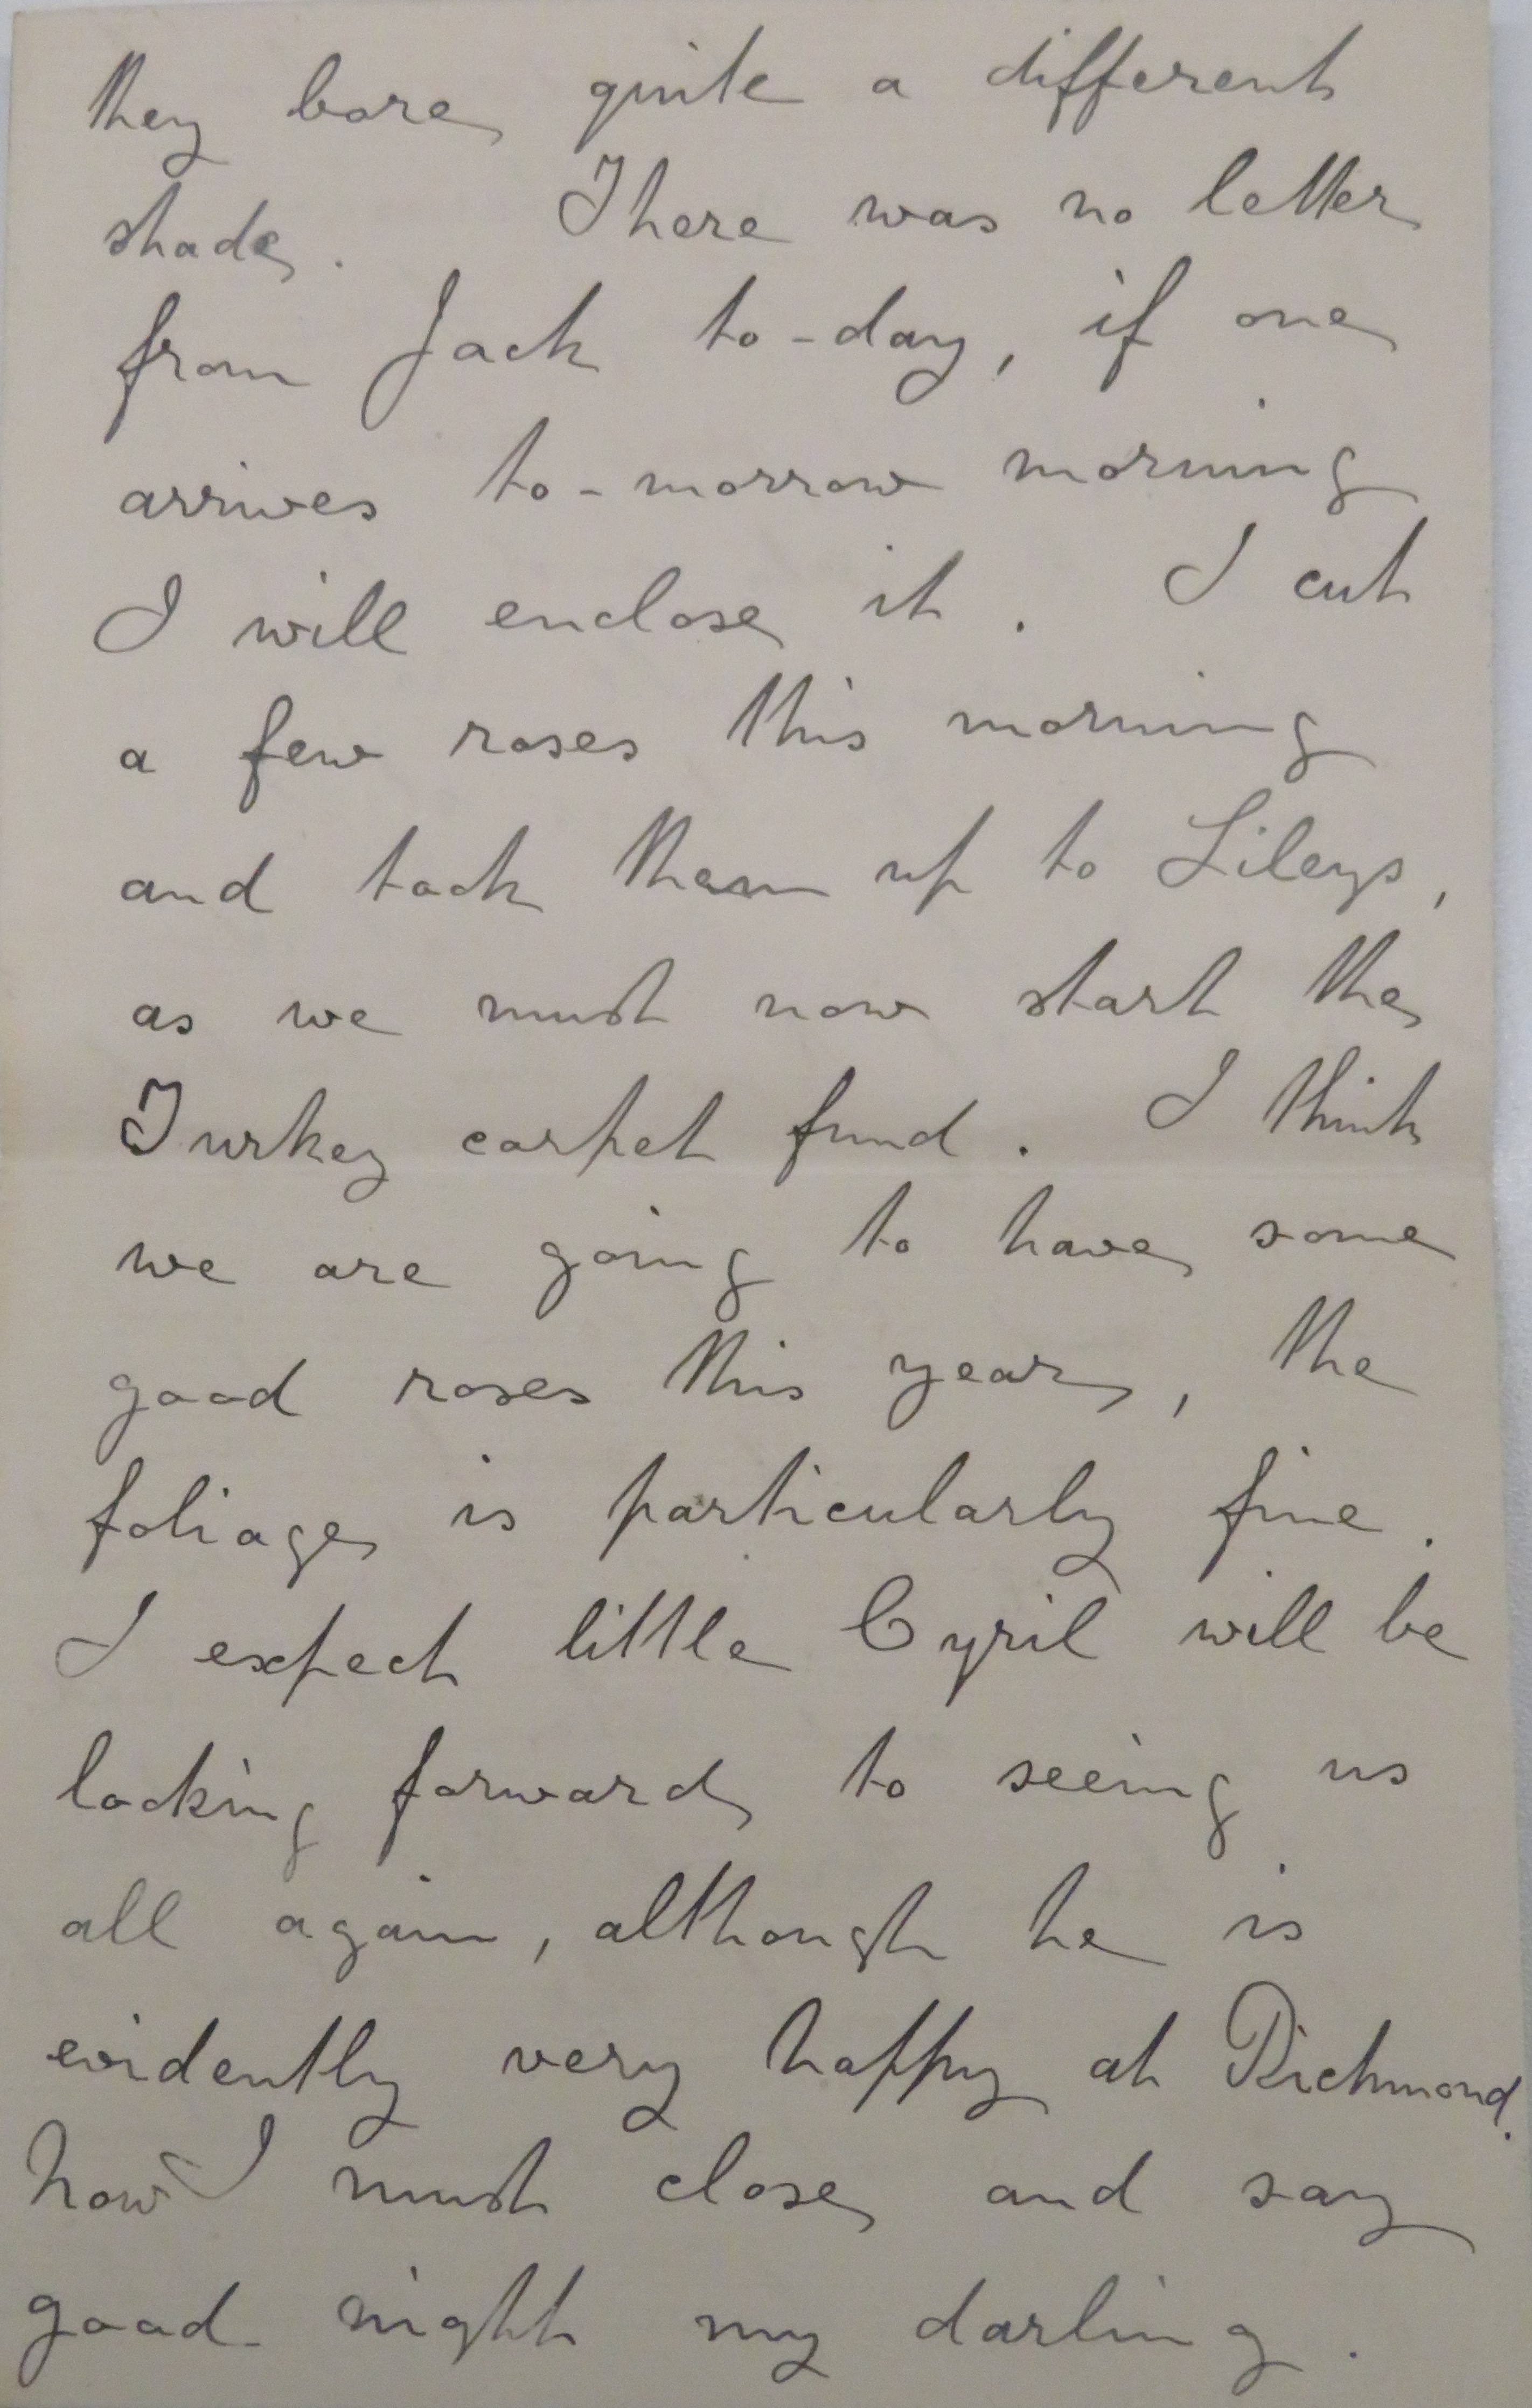 they bore quite a different
shade. There was no letter
from Jack to-day, if one
arrives to-morrow morning
I will enclose it. I cut
a few roses this morning
and took them up to Lileys,
as we must now start the
Turkey carpet fund. I think
we are going to have some
good roses this year, the
foliage is particularly fine.
I expect little Cyril will be
looking forward to seeing us
all again, although he is
evidently very happy at Richmond.
Now I must close and say
good night my darling.